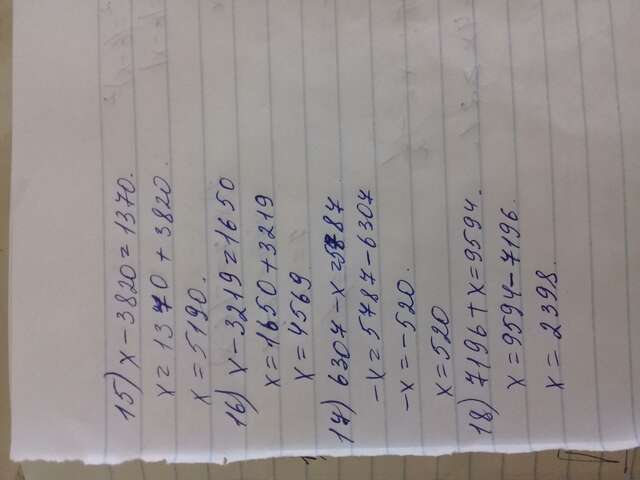 15) x - 3820 = 1370.
x = 1370 + 3820.
x = 5190.
16) x - 3219 = 1650
x = 1650 + 3219
x = 4569
17) 6307 - x = 5787
-x = 5787 - 6307
-x = -520.
x = 520
18) 7196 + x = 9594.
x = 9594 - 7196.
x = 2398.